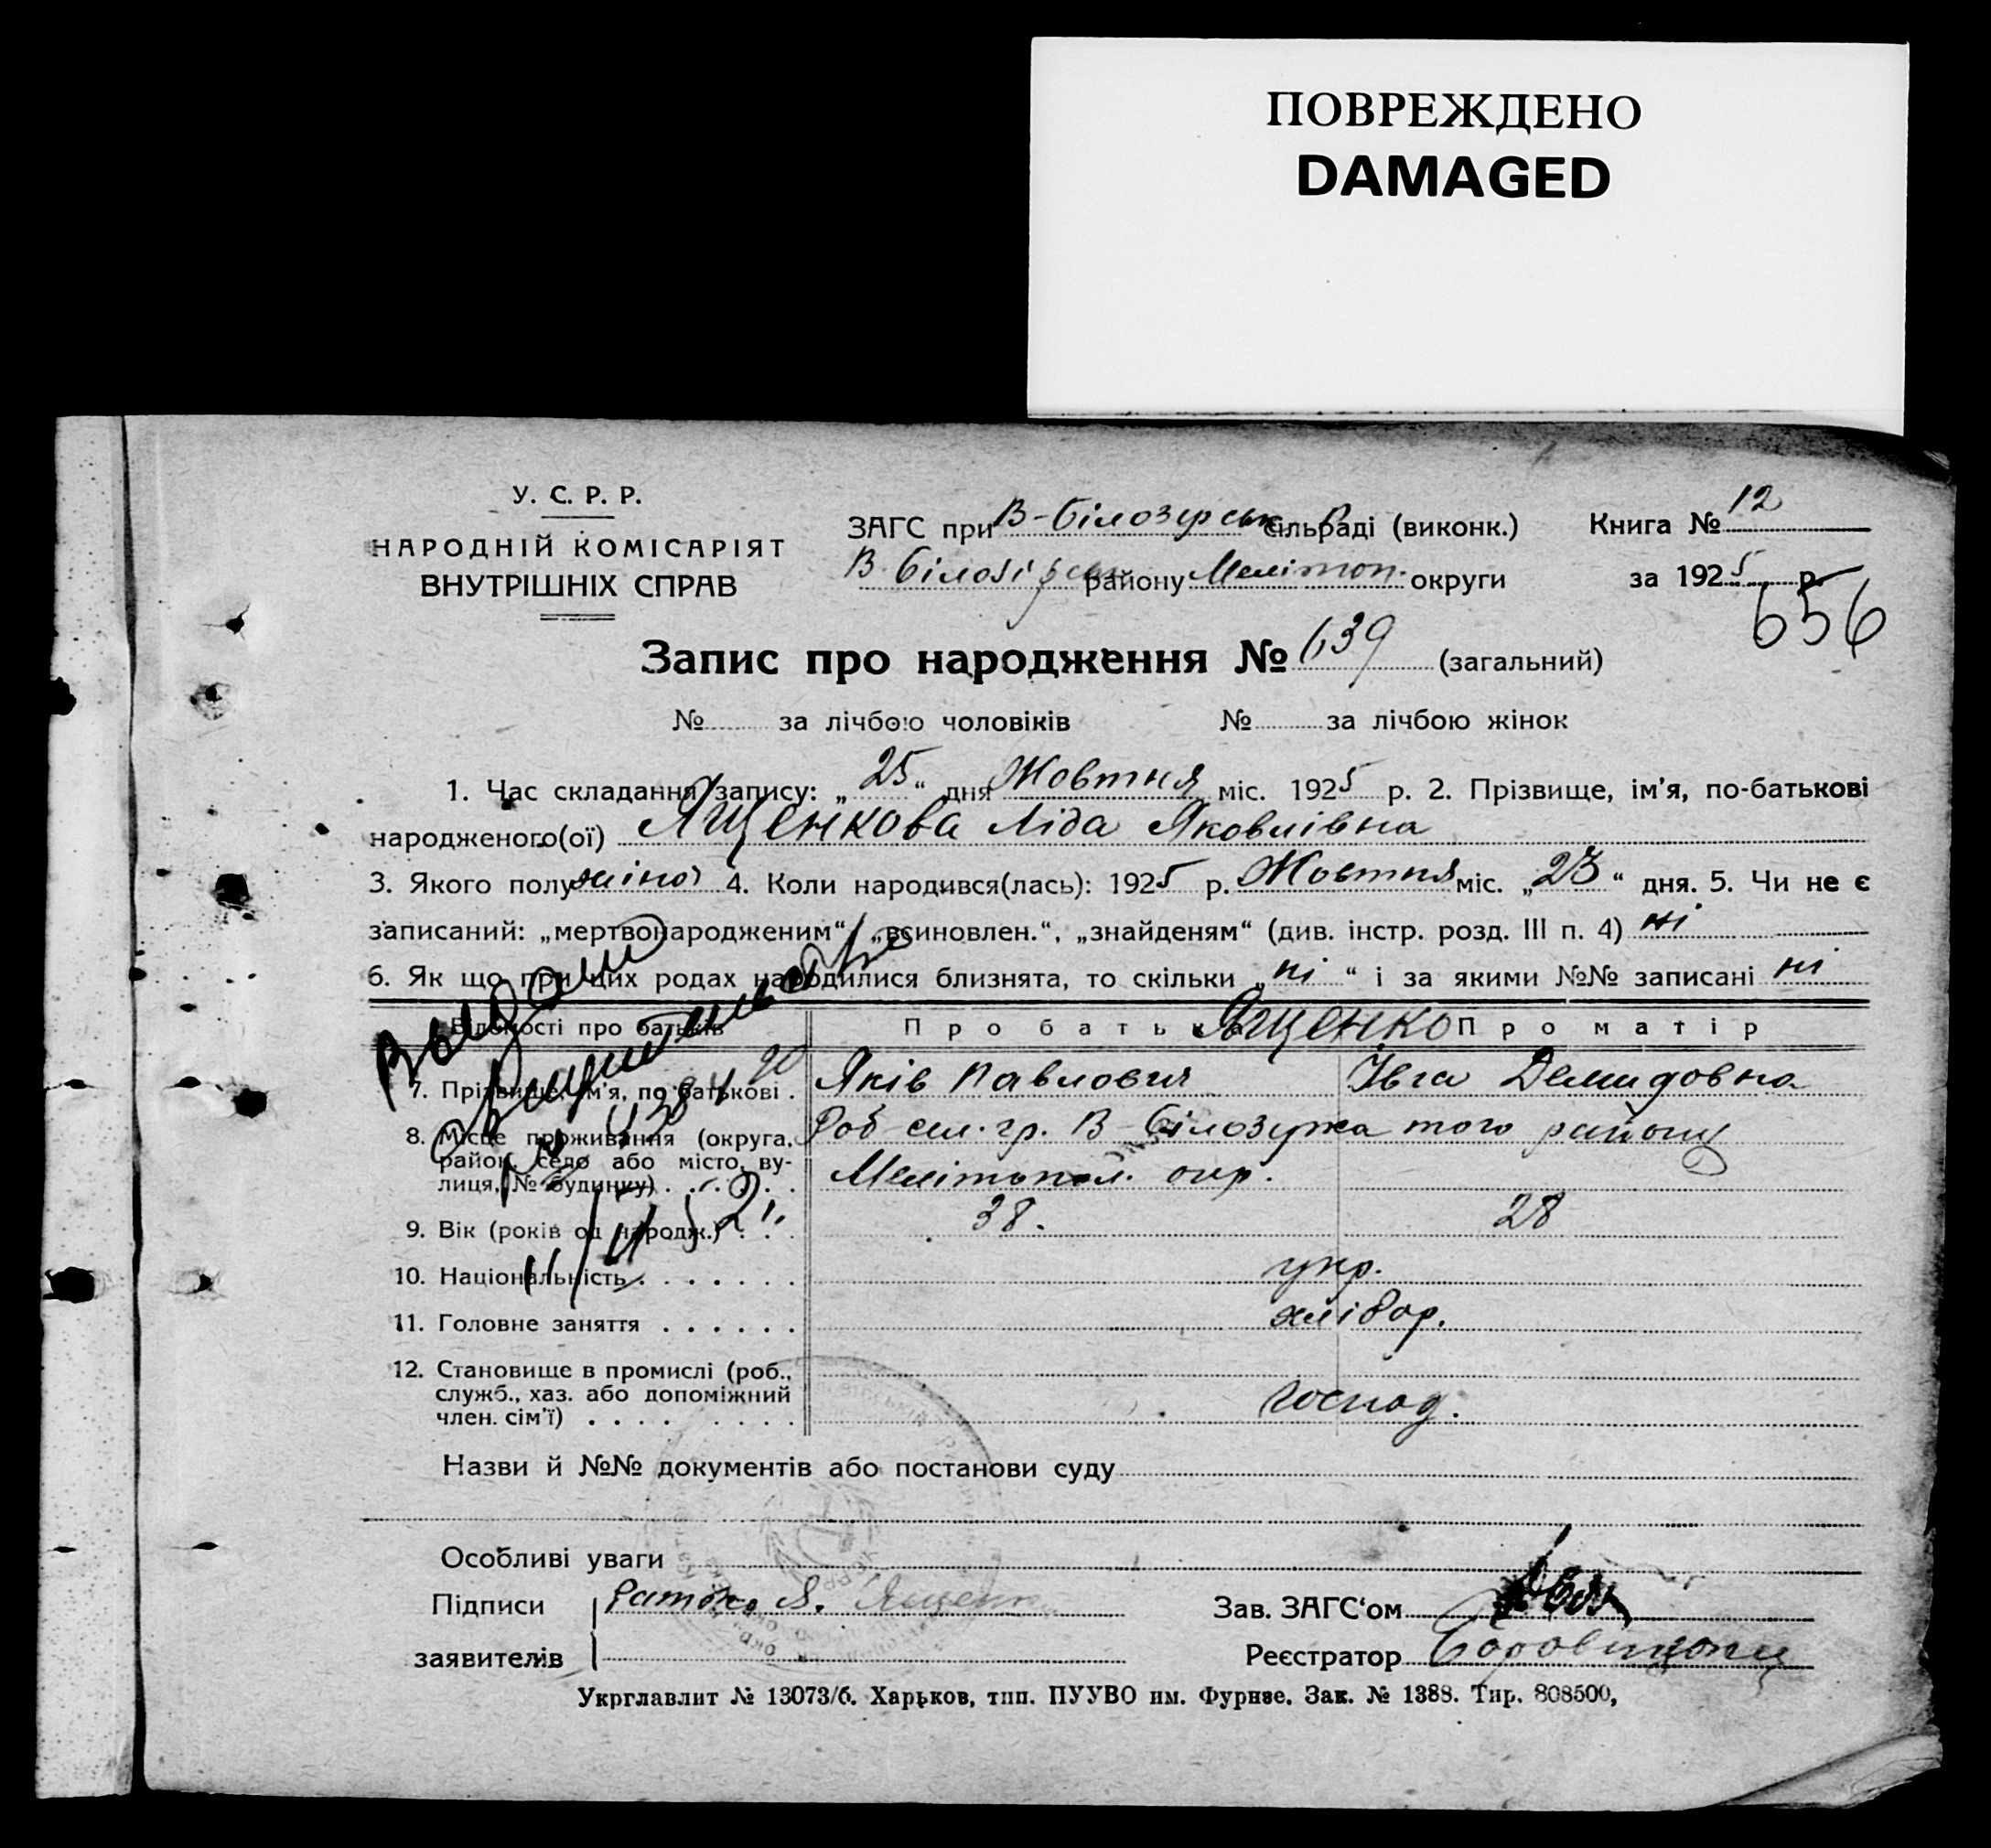 ПОВРЕЖДЕНО
DAMAGED
У. С. Р. Р.
НАРОДНІЙ КОМІСАРІЯТ
ВНУТРІШНІХ СПРАВ
ЗАГС при В-Білозерськ. сільраді (виконк.)
В. Білозірськ району Мелітоп. округи
Книга № 12
за 1925 р.
656
Запис про народження № 639 (загальний)
№ за лічбою чоловіків № за лічбою жінок
1. Час складання запису: „25“ дня Жовтня міс. 1925 р. 2. Прізвище, ім’я, по-батькові
народженого(ої) Ященкова Ліда Яковлівна
3. Якого полу жіноч 4. Коли народився(лась): 1925 р. Жовтня міс. „23“ дня. 5. Чи не є
записаний: „мертвонародженим“, „всиновлен.“, „знайденям“ (див. інстр. розд. III п. 4) ні
6. Як що при цих родах народилися близнята, то скільки „ні“ і за якими №№ записані ні
Відомості про батьків Про батька Ященко Про матір
7. Прізвище, ім’я, по батькові . Яків Павлович Івга Демидовна
8. Місце проживання (округа, Роб сел. гр. В-Білозерка того району
район, село або місто, ву- Мелітопол. окр.
лиця, № будинку) . . . . . .
9. Вік (років од народж.) . . . 38. 28
10. Національність . . . . . . . укр.
11. Головне заняття . . . . . . хлібор.
12. Становище в промислі (роб.,
служб., хаз. або допоміжний
член. сім’ї) . . . . . . . . господ.
Выдано
свидительство
Назви й №№ документів або постанови суду
Особливі уваги
Підписи
заявителів
Зав. ЗАГС‘ом
Реєстратор
Укрглавлит № 13073/б. Харьков, тип. ПУУВО им. Фурнзе. Зак. № 1388. Тир. 808500,